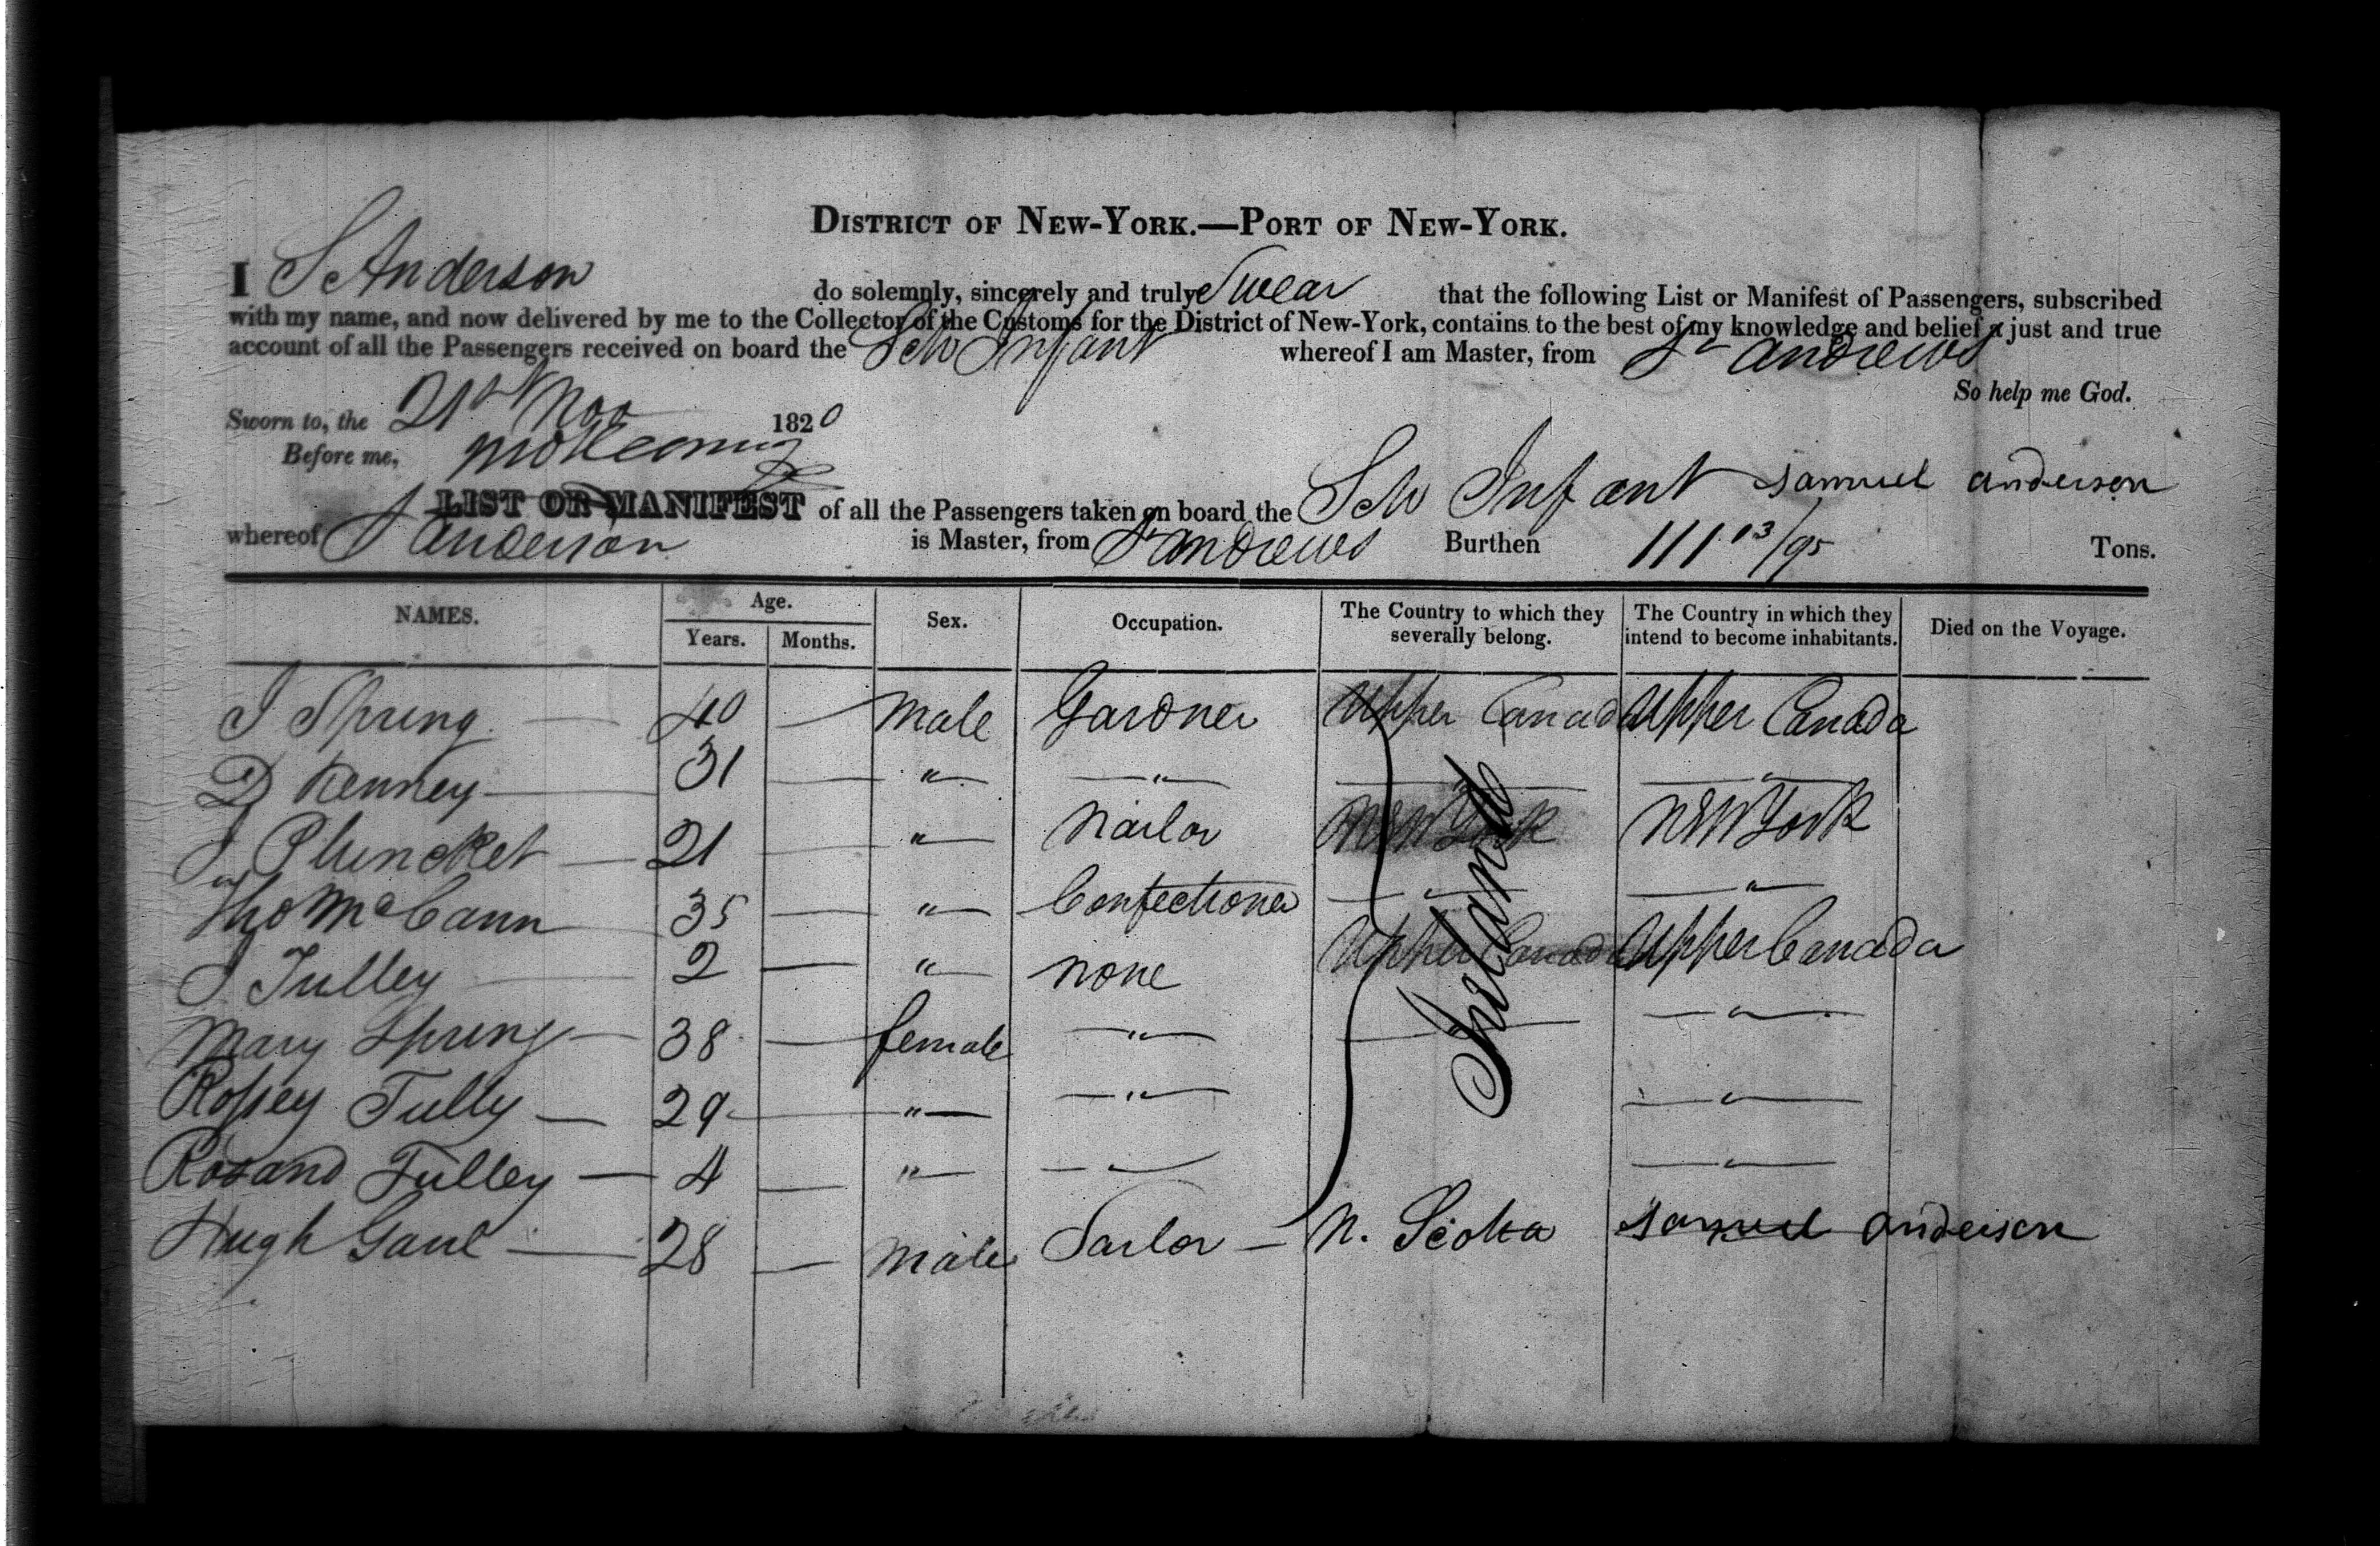 DISTRICT OF NEW-YORK.—PORT OF NEW-YORK.
I S Anderson do solemnly, sincerely and truly Swear that the following List or Manifest of Passengers, subscribed
with my name, and now delivered by me to the Collector of the Customs for the District of New-York, contains to the best of my knowledge and belief a just and true
account of all the Passengers received on board the Sch Infant whereof I am Master, from St Andrews
So help me God.
Sworn to, the 21st Nov 1820
Before me,
LIST OR MANIFEST of all the Passengers taken on board the Sch Infant Samuel anderson
whereof S Anderson is Master, from St Andrews Burthen 111 13/95 Tons.
NAMES. Age. Sex. Occupation. The Country to which they severally belong. The Country in which they intend to become inhabitants. Died on the Voyage.
Years. Months.
J Spring 40 — male Gardner Upper Canada Upper Canada
D Kenney 31 — " " " "
J Pluncket 21 — " Nailor New York New York
Tho McCann 35 — " Confectioner " "
J Tulley 2 — " none Upper Canada Upper Canada
Mary Spring 38 — female " — "
Rossey Tully 29 — " " "
Rosand Tulley 4 — " " "
Ireland
Hugh Gaul 28 — male Sailor — N. Scotia Samuel anderson